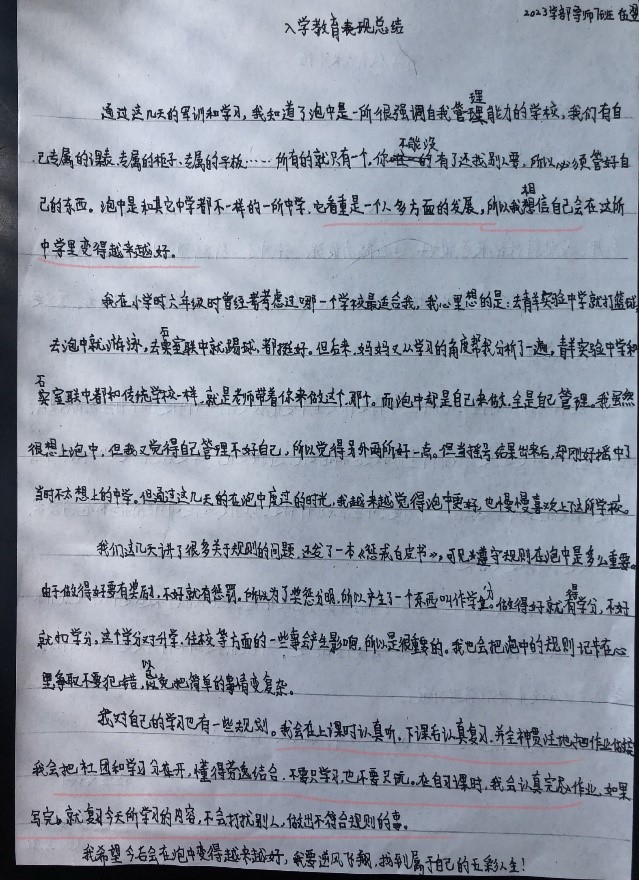 2023学部导师7班 伍翌
入学教育表现总结
通过这几天的军训和学习,我知道了泡中是一所很强调自我管理能力的学校,我们有自
己专属的课表、专属的柜子、专属的平板……所有的就只有一个,你不能没有了还找别人要,所以必须管好自
己的东西。泡中是和其它中学都不一样的一所中学,它看重是一个人多方面的发展,所以我相信自己会在这所
中学里变得越来越好。
我在小学时六年级时曾经考虑过哪一个学校最适合我,我心里想的是:去青羊实验中学就打篮球,
去泡中就游泳,去石室联中就踢球,都挺好。但后来,妈妈又从学习的角度帮我分析了一遍,青羊实验中学和
石室联中都和传统学校一样,就是老师带着你来做这个、那个。而泡中却是自己来做,全是自己管理。我虽然
很想上泡中,但我又觉得自己管理不好自己,所以觉得另外两所好一点。但当摇号结果出来后,却刚好摇中了
当时不太想上的中学。但通过这几天的在泡中度过的时光,我越来越觉得泡中更好,也慢慢喜欢上了这所学校。
我们这几天讲了很多关于规则的问题,还发了一本《惩戒白皮书》,可见遵守规则在泡中是多么重要。
由于做得好要有奖励,不好就有惩罚。所以为了奖惩分明,所以产生了一个东西叫作学分,做得好就得学分,不好
就扣学分,这个学分对升学、住校等方面的一些事会产生影响,所以是很重要的。我也会把泡中的规则记牢在心
里争取不要犯错,以免把简单的事情变复杂。
我对自己的学习也有一些规划。我会在上课时认真听,下课后认真复习,并全神贯注地把作业做完
我会把社团和学习分在开,懂得劳逸结合,不要只学习,也不要只玩。在自习课时,我会认真完成作业,如果
写完,就复习今天所学习的内容,不会打扰别人,做出不符合规则的事。
我希望今后会在泡中变得越来越好,我要逆风飞翔,找到属于自己的五彩人生!